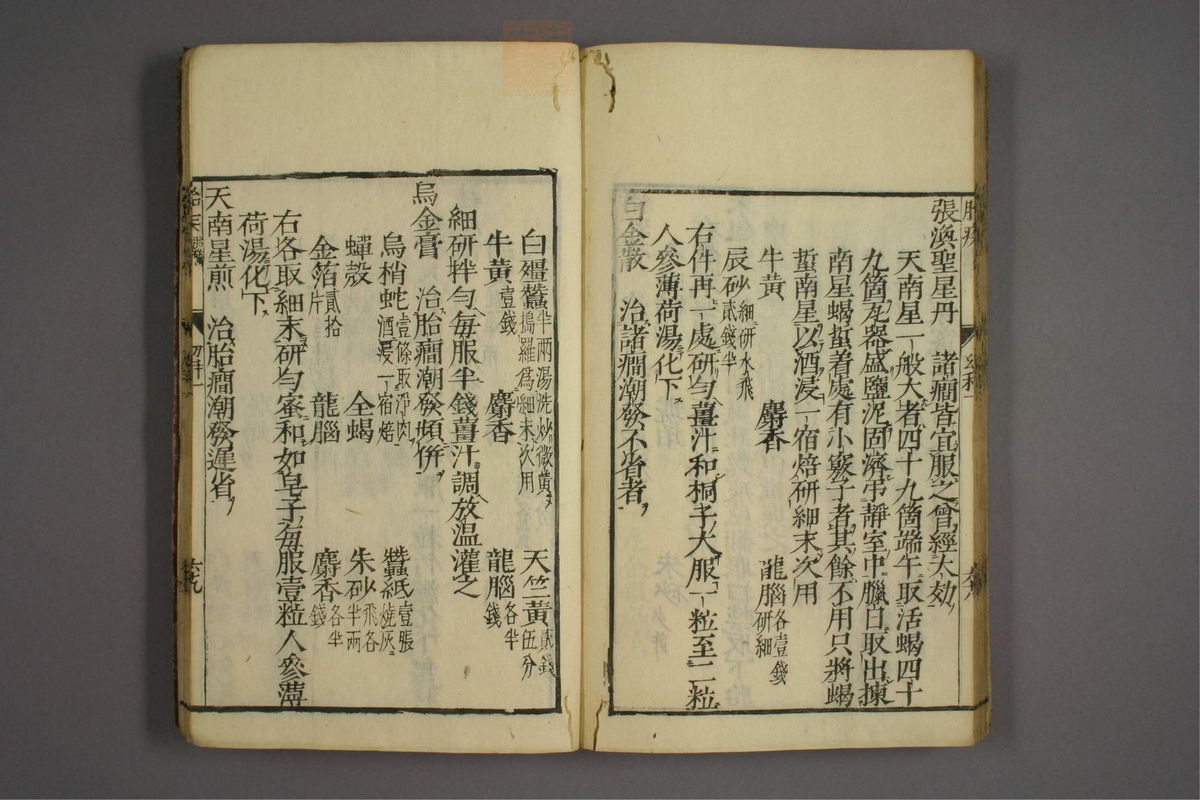 張渙聖星丹　諸癇皆宜服之曾經大効
天南星一般大者四十九箇端午取活蝎四十
九箇瓦器盛鹽泥固濟弔靜室中臘日取出揀
南星蝎蜇着處有小竅子者其餘不用只將蝎
蜇南星以酒浸一宿焙研細末次用
牛黃　麝香　龍腦各壹錢研細
辰砂細研水飛貳錢半
右件再一處研勻薑汁和桐子大服一粒至二粒
人參薄荷湯化下
白金散　治諸癇潮發不省者
白殭蠶半兩湯洗炒微黃搗羅爲細末次用　天竺黃貳錢伍分
牛黃壹錢　麝香　龍腦各半錢
細研拌勻每服半錢薑汁調放温灌之
烏金膏　治胎癇潮發頻倂
烏梢蛇壹條取淨肉酒浸一宿焙　蠶紙壹張燒灰
蟬殼　全蝎　朱砂飛各半兩
金箔貳拾片　龍腦　麝香各半錢
右各取細末研勻蜜和如皂子每服壹粒人參薄
荷湯化下
天南星煎　治胎癇潮發遲省